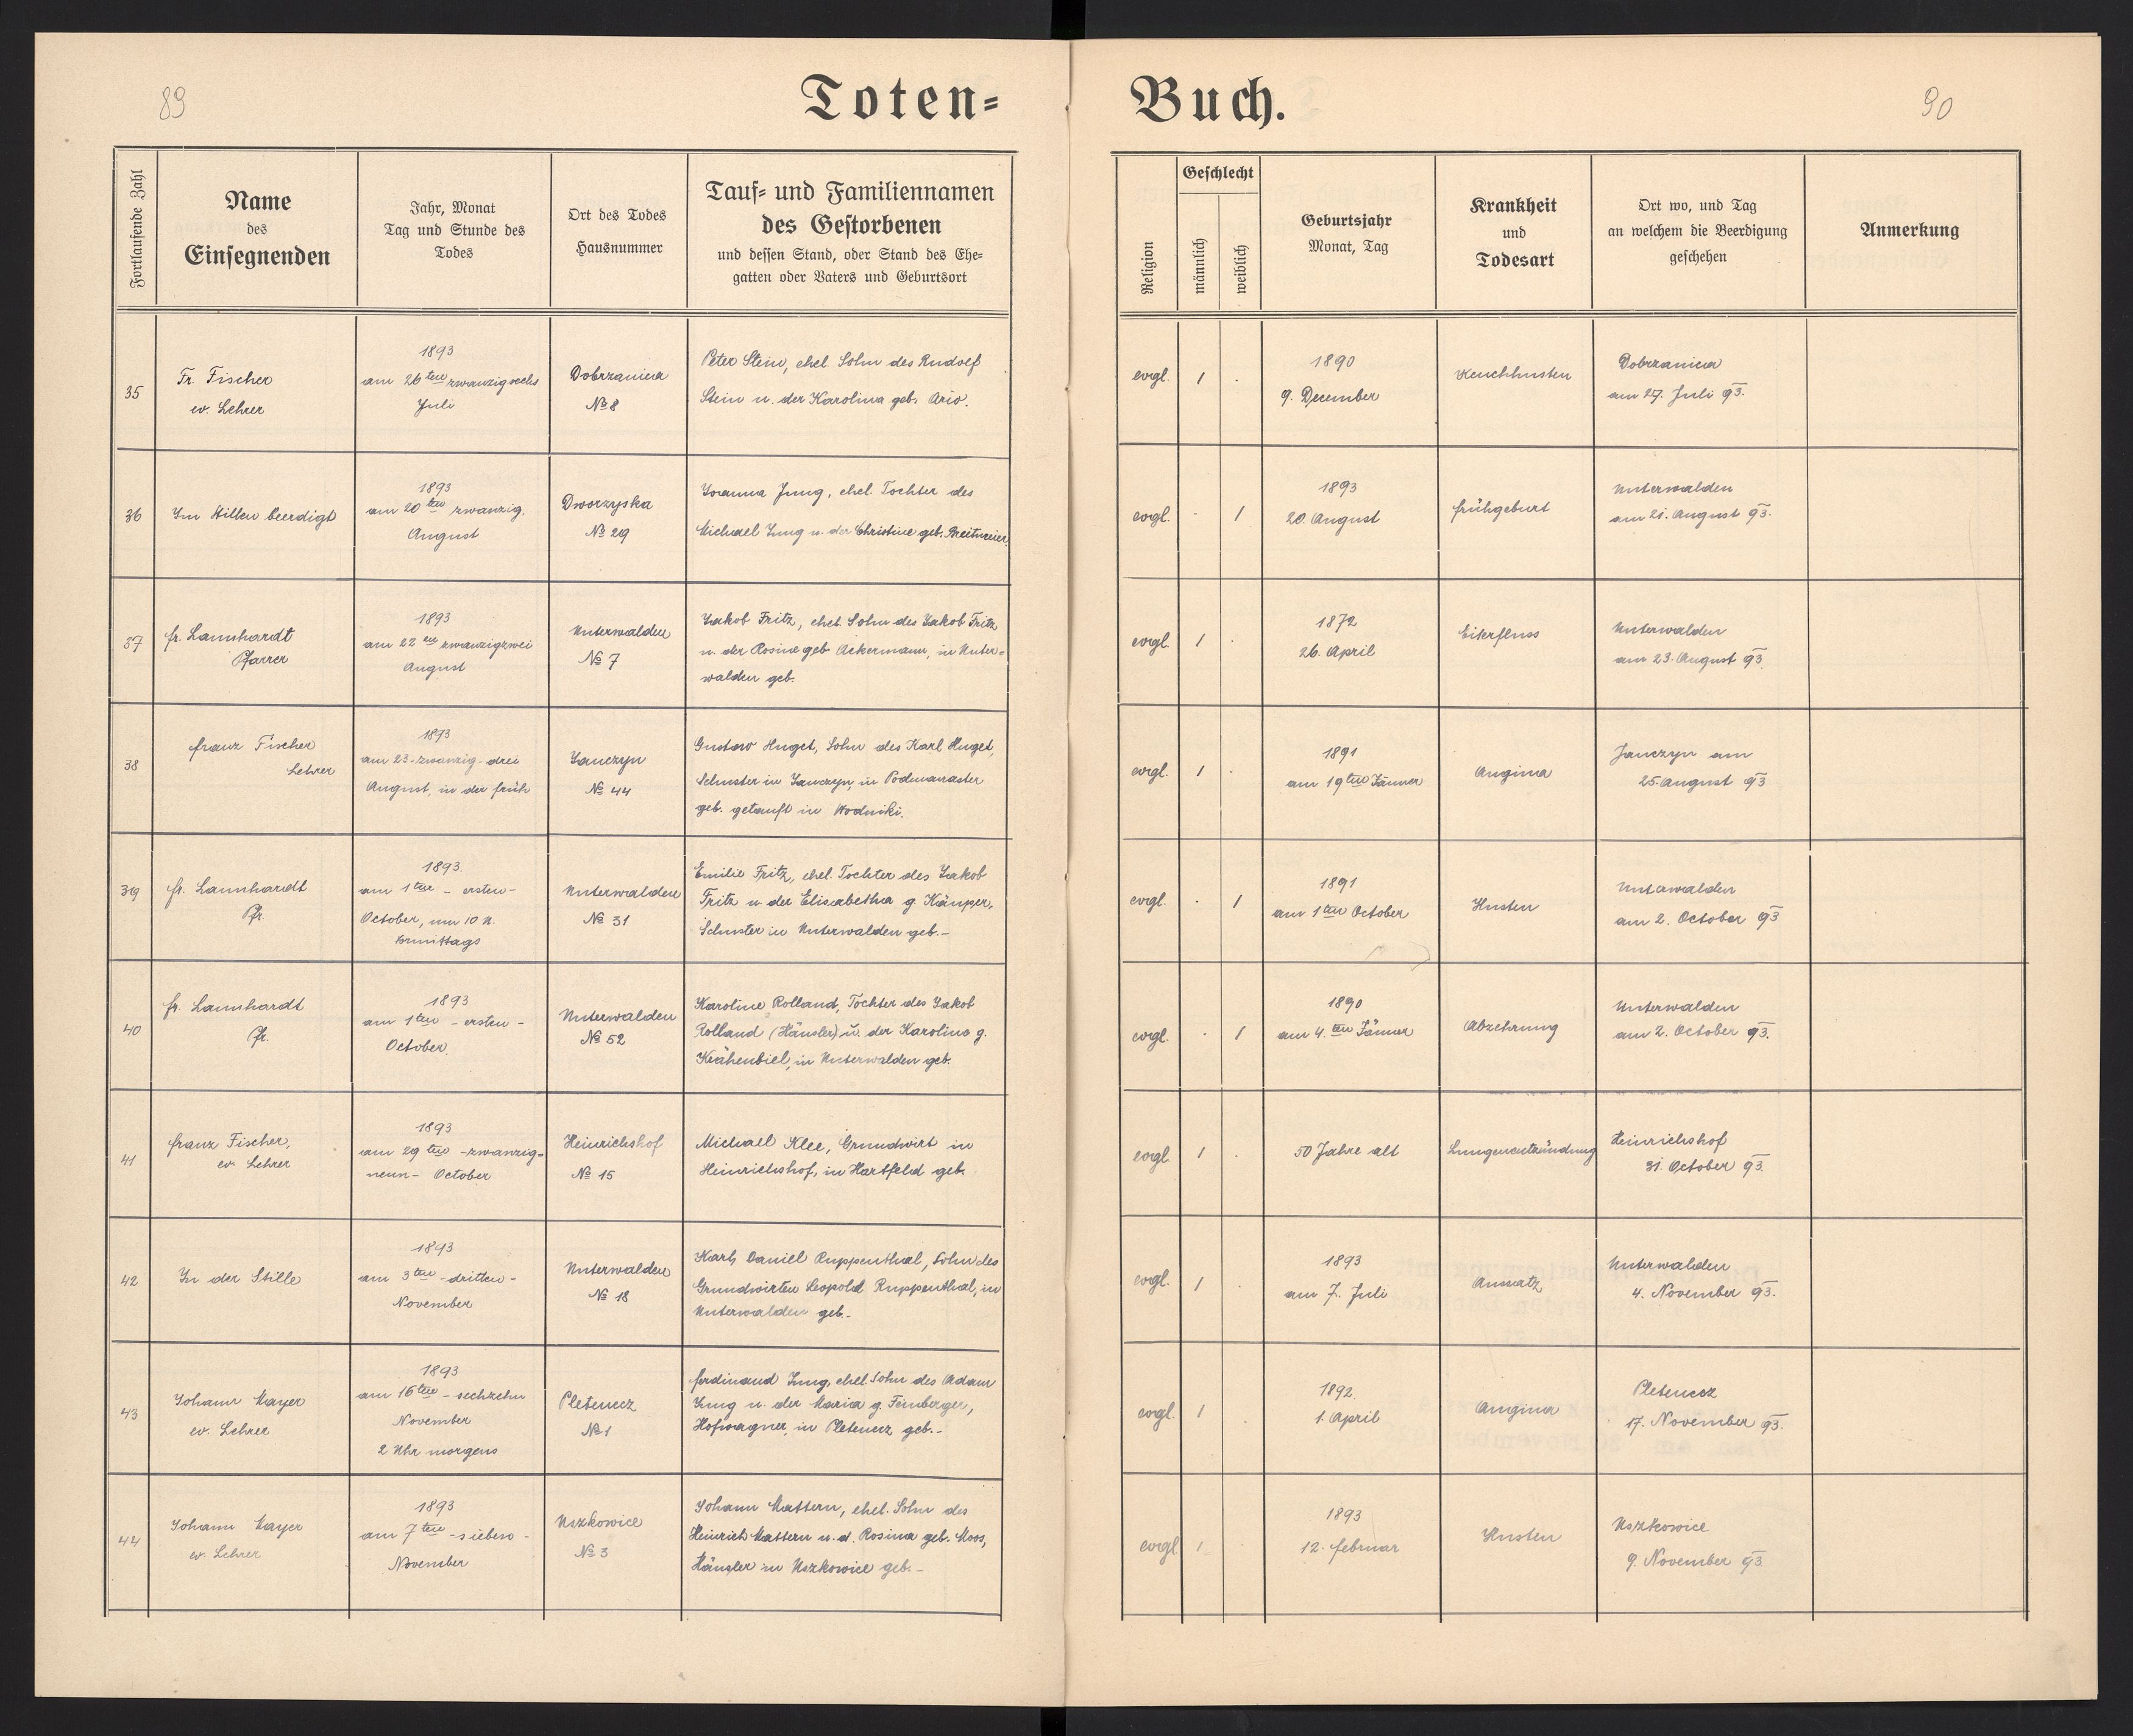 89
Toten=
Fortlaufende Zahl
Name
des
Einsegnenden
Jahr, Monat
Tag und Stunde des
Todes
Ort des Todes
Hausnummer
Tauf= und Familiennamen
des Gestorbenen
und dessen Stand, oder Stand des Ehe=
gatten oder Vaters und Geburtsort
35
Fr. Fischer
ev. Lehrer
1893
am 26ten zwanzigsechs
Juli
Dobrzanica
№ 8
Peter Stein, ehel. Sohn des Rudolf
Stein u. der Karolina geb. Ario.
36
Im Stillen beerdigt
1893
am 20ten zwanzig.
August
Dworzyska
№ 29
Joanna Jung, ehel. Tochter des
Michael Jung u. der Christine geb. Breitmeier.
37
fr. Lannhardt
Pfarrer
1893
am 22ten zwanzigzwei
August
Unterwalden
№ 7
Jakob Fritz, ehel. Sohn des Jakob Fritz
u. der Rosine geb Ackermann, in Unter=
walden geb.
38
franz Fischer
Lehrer
1893
am 23-zwanzig-drei
August, in der früh
Janczyn
№ 44
Gustaw Huget, Sohn des Karl Huget,
Schuster in Janczyn, in Podmanaster
geb. getauft in Wodniki.
39
fr. Lannhardt
Pfr.
1893.
am 1ten - ersten-
October, um 10 U.
vormittags
Unterwalden
№ 31
Emilie Fritz, ehel. Tochter des Jakob
Fritz u der Elisabetha g. Känper,
Schuster in Unterwalden geb.-
40
fr. Lannhardt
Pfr.
1893
am 1ten - ersten -
October
Unterwalden
№ 52
Karoline Rolland, Tochter des Jakob
Rolland (Häusler) u. der Karoline g.
Krähenbiel, in Unterwalden geb.
41
franz Fischer,
ev. Lehrer
1893
am 29ten -zwanzig-
neun- October
Heinrichshof
№ 15
Michael Klee, Grundwirt in
Heinrichshof, in Hartfeld geb.
42
In der Stille
1893
am 3ten - dritten -
November
Unterwalden
№ 18
Karl, Daniel Ruppenthal, Sohn des
Grundwirten Leopold Ruppenthal, in
Unterwalden geb.-
43
Johann Mayer
ev. Lehrer
1893
am 16ten - sechzehn
November
2 Uhr morgens
Pletenicz
№ 1
ferdinand Jung, ehel. Sohn des Adam
Jung u. der Maria g. Feinberger,
Hofwagner, in Pletenicz geb.-
44
Johann Mayer
ev. Lehrer
1893
am 7ten - sieben -
November
Uszkowice
№ 3
Johann Mattern, ehel. Sohn des
Heinrich Mattern u. d. Rosina geb. Moos,
Häusler in Uszkowice geb.-
Buch.
90
Religion
Geschlecht
männlich
weiblich
Geburtsjahr
Monat, Tag
Krankheit
und
Todesart
Ort wo, und Tag
an welchem die Beerdigung
geschehen
Anmerkung
evgl. 1 .
1890
9. December
Keuchhusten
Dobrzanica
am 27. Juli 93.
evgl. . 1
1893
20. August
frühgeburt
Unterwalden
am 21. August 93.
evgl. 1 .
1872
26. April
Eiterfluss
Unterwalden
am 23. August 93.
evgl. 1 .
1891
am 19ten Jänner
Angina
Janczyn am
25. August 93
evgl. . 1
1891
am 1ten October
Husten
Unterwalden
am 2. October 93
evgl. . 1
1890
am 4.ten Jänner
Abzehrung
Unterwalden
am 2. October 93.
evgl. 1 .
50 Jahre alt
Lungenentzündung
Heinrichshof
31. October 93.
evgl. 1 .
1893
am 7. Juli
Aussatz
Unterwalden
4. November 93.
evgl. 1 .
1892.
1. April
Angina
Pletenicz
17. November 93.
evgl 1
1893
12. februar
Husten
Uszkowice
9. November 93